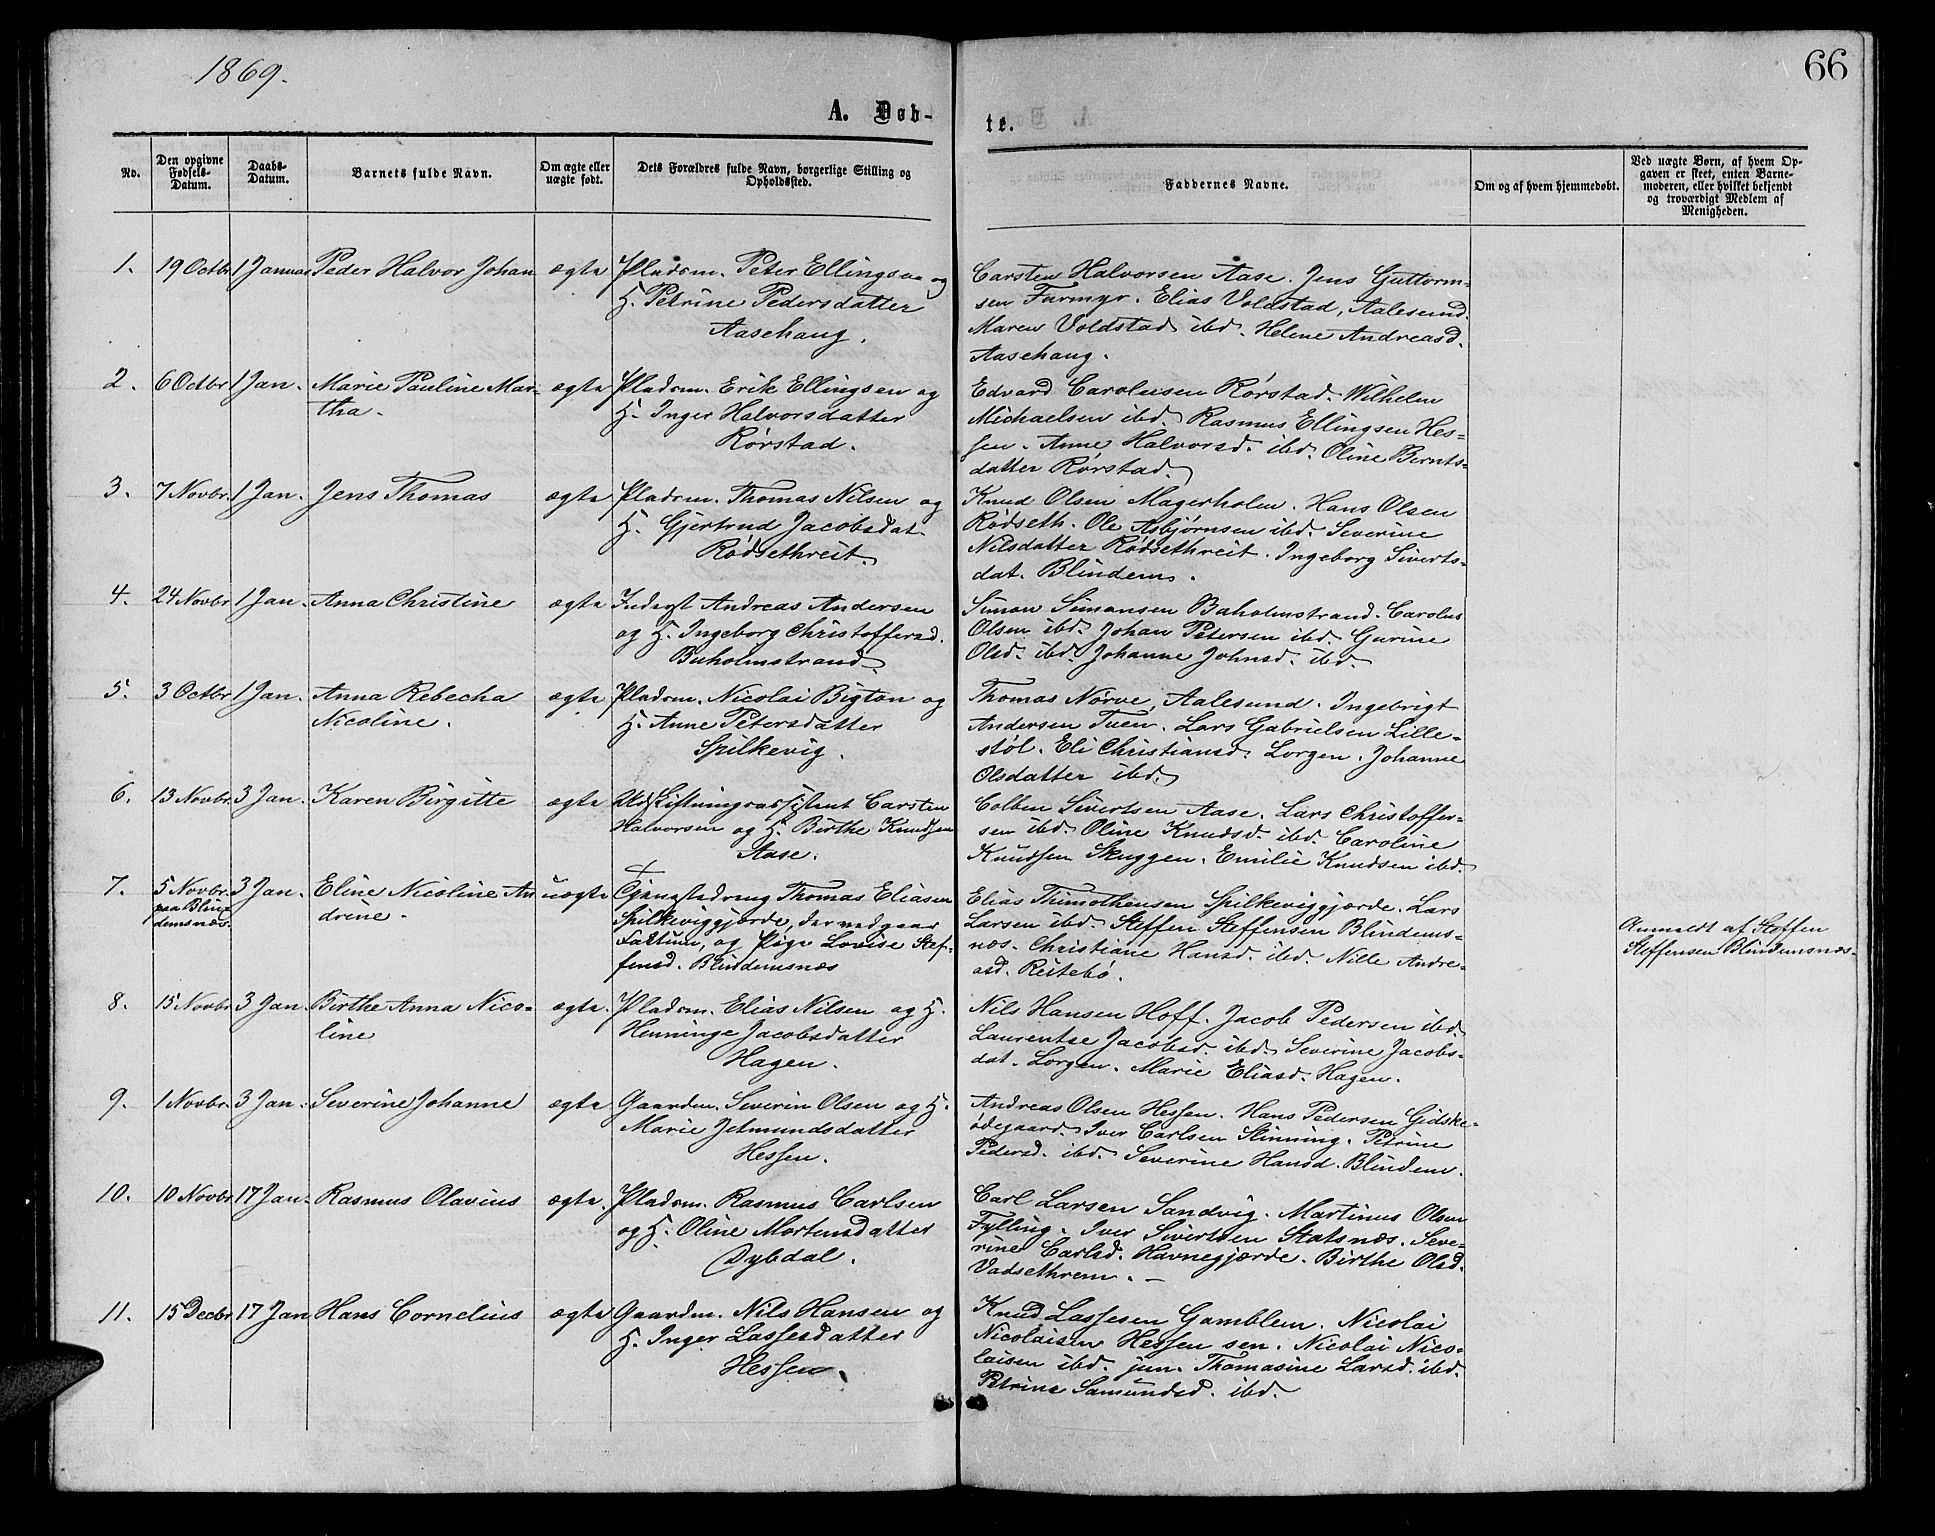 1869.
66
A. Døb-
te.
No.
Den opgivne
Fødsels-
Datum.
Daabs-
Datum.
Barnets fulde Navn.
Om ægte eller
uægte født.
Dets Forældres fulde Navn, borgerlige Stilling og
Opholdssted.
Faddernes Navne.
Om og af hvem hjemmedøbt.
Ved uægte Børn, af hvem Op-
gaven er skeet, enten Barne-
moderen, eller hvilket bekjendt
og troværdigt Medlem af
Menigheden.
1. 19 Octbr 1 Januar Peder Halvor Johan ægte Pladsm. Peter Ellingsen og
H. Petrine Pedersdatter
Aasehaug.
Carsten Halvorsen Aase. Jens Guttorm-
sen Furmyr. Elias Voldstad, Aalesund.
Maren Voldstad ibd. Helene Andreasd.
Aasehaug.
2. 6 Octbr 1 Jan. Marie Pauline Mar- ægte Pladsm. Erik Ellingsen og
tha.
H. Inger Halvorsdatter
Rørstad.
Edvard Carolusen Rørstad. Wilhelm
Michaelsen ibd. Rasmus Ellingsen Hes-
sen. Anne Halvorsd. ibd. Oline Bernts-
datter Rørstad.
3. 7 Novbr. 1 Jan. Jens Thomas ægte Pladsm. Thomas Nilsen og
H. Gjertrud Jacobsdat.
Rødsethreit.
Knud Olsen Magerholm. Hans Olsen
Rødseth. Ole Asbjørnsen ibd. Severine
Nilsdatter Rødsethreit. Ingeborg Siverts-
dat. Blindem.
4. 24 Novbr 1 Jan. Anna Christine ægte Inderst Andreas Andersen
og H. Ingeborg Christoffersd.
Buholmstrand.
Simon Simonsen Buholmstrand. Carolus
Olsen ibd. Johan Petersen ibd. Gurine
Olsd. ibd. Johanne Johnsd. ibd.
5. 3 Octbr 1 Jan. Anna Rebecha ægte Pladsm. Nicolai Bigton og
Nicoline.
H. Anne Petersdatter
Spilkevig.
Thomas Nørve, Aalesund. Ingebrigt
Andersen Tuen. Lars Gabrielsen Lille-
støl. Eli Christiansd. Lorgen. Johanne
Olsdatter ibd.
6. 13 Novbr. 3 Jan. Karen Birgitte ægte Udskiftningsassistent Carsten
Halvorsen og H. Birthe Knudsen
Aase.
Colben Sivertsen Aase. Lars Christoffer-
sen ibd. Oline Knudsd. ibd. Caroline
Knudsen Skuggen. Emilie Knudsen ibd.
7. 5 Novbr. 3 Jan. Eline Nicoline An uægte Tjenestedreng Thomas Eliasen
paa Blin-
demsnæs.
drine.
Spilkeviggjerde, der vedgaar
Factum, og Pige Lovise Stef-
fensd. Blindemsnæs
Elias Thimotheusen Spilkeviggjærde. Lars
Larsen ibd. Steffen Steffensen Blindems-
næs. Christiane Hansd. ibd. Nille Andre-
asd Reitebø.
Anmeldt af Steffen
Steffensen Blindemsnæs.
8. 15 Novbr 3 Jan. Birthe Anna Nico- ægte. Pladsm. Elias Nilsen og H.
line
Henninge Jacobsdatter
Hagen.
Nils Hansen Hoff. Jacob Pedersen ibd.
Laurentse Jacobsd. ibd. Severine Jacobs-
dat. Lorgen. Marie Eliasd. Hagen.
9. 1 Novbr. 3 Jan. Severine Johanne ægte Gaardm. Severin Olsen og H.
Marie Jetmundsdatter
Hessen.
Andreas Olsen Hessen. Hans Pedersen Gidske-
ødegaard. Iver Carlsen Slinning. Petrine
Pedersd. ibd. Severine Hansd. Blindem.
10. 10 Novbr 17 Jan. Rasmus Olavius ægte. Pladsm. Rasmus Carlsen
og H. Oline Mortensdatter
Dybdal.
Carl Larsen Sandvig. Martinus Olsen
Fylling. Iver Sivertsen Statsnæs. Seve-
rine Carlsd. Havnegjærde. Birthe Olsd.
Vadsethrem. –
11. 15 Decbr 17 Jan Hans Cornelius ægte Gaardm. Nils Hansen og
H. Inger Lassesdatter
Hessen.
Knud Lassesen Gamblem. Nicolai
Nicolaisen Hessen sen. Nicolai Nico-
laisen ibd. jun. Thomasine Larsd. ibd.
Petrine Samundsd. ibd.